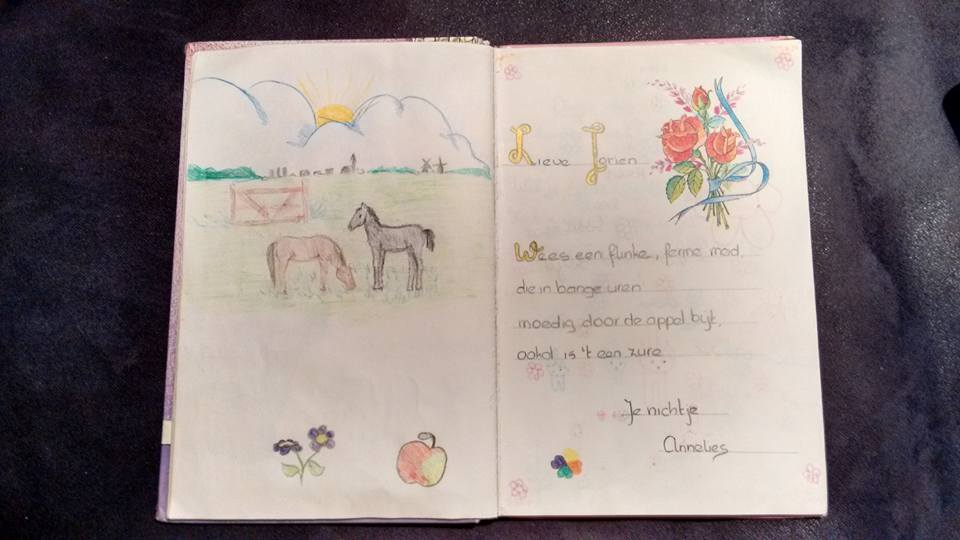 Lieve Jorien
Wees een flinke, ferme mod,
die in bange uren
moedig door de appel bijt,
ookal is 't een zure
Je nichtje
Annelies